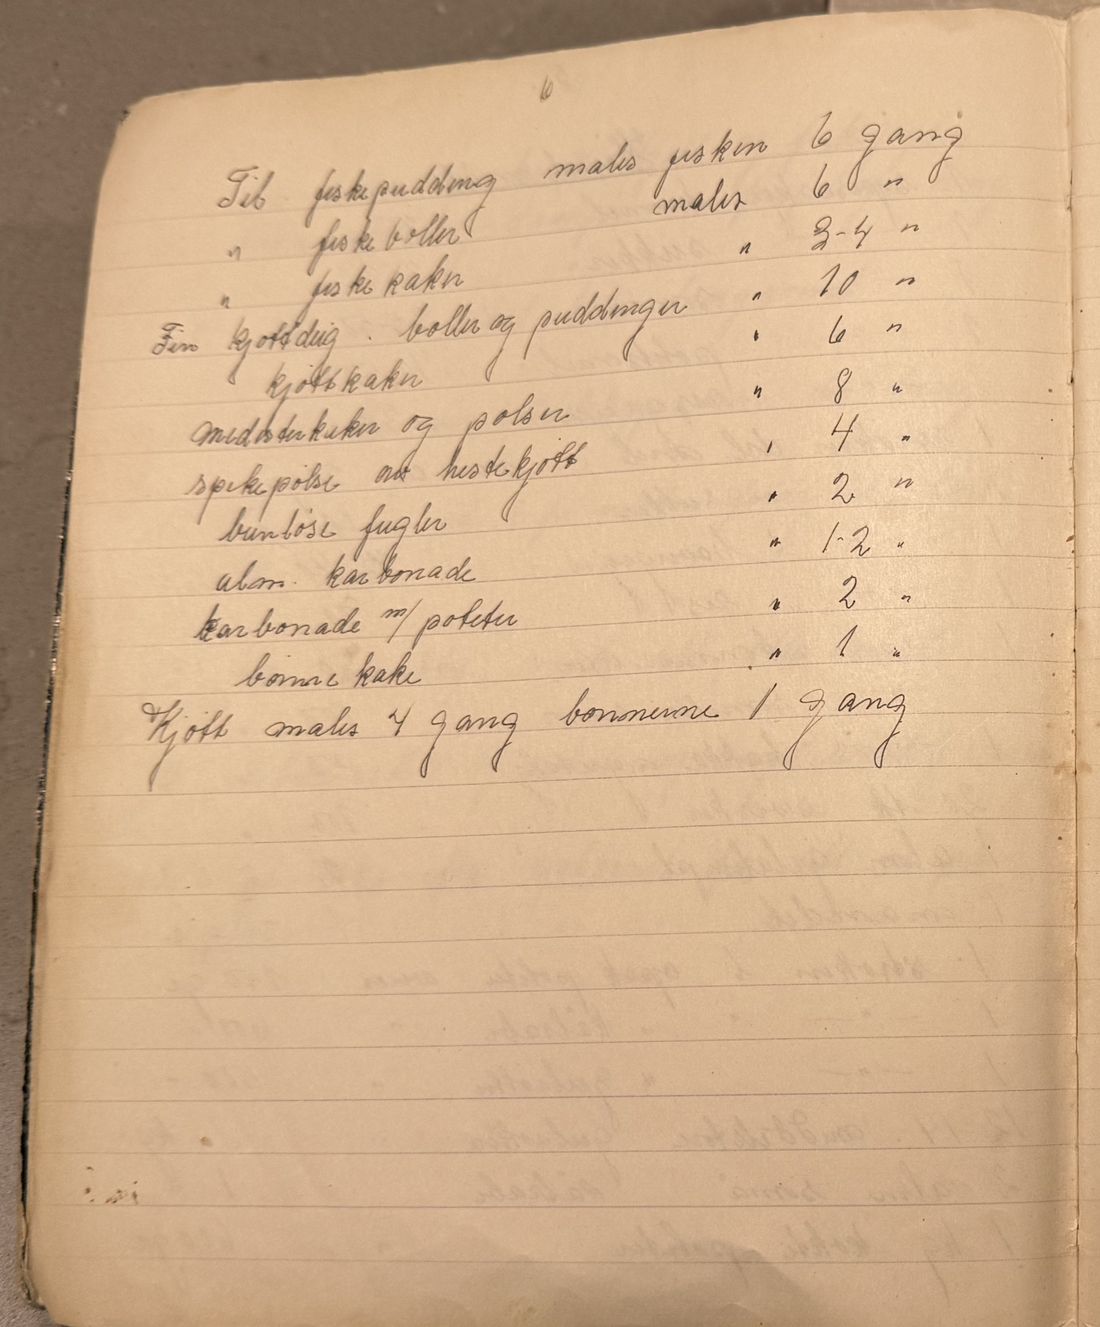 6
Til fiskepudding males fisken 6 gang
" fiskeboller males 6 "
" fiskekaker " 3-4 "
Fin kjøttdeig. boller og puddinger " 10 "
kjøttkaker " 6 "
medisterkaker og pølser " 8 "
spekepølse av hestekjøtt " 4 "
benløse fugler " 2 "
alm. karbonade " 1-2 "
karbonade m/ poteter " 2 "
bønnekake " 1 "
Kjøtt males 4 gang bønnerne 1 gang